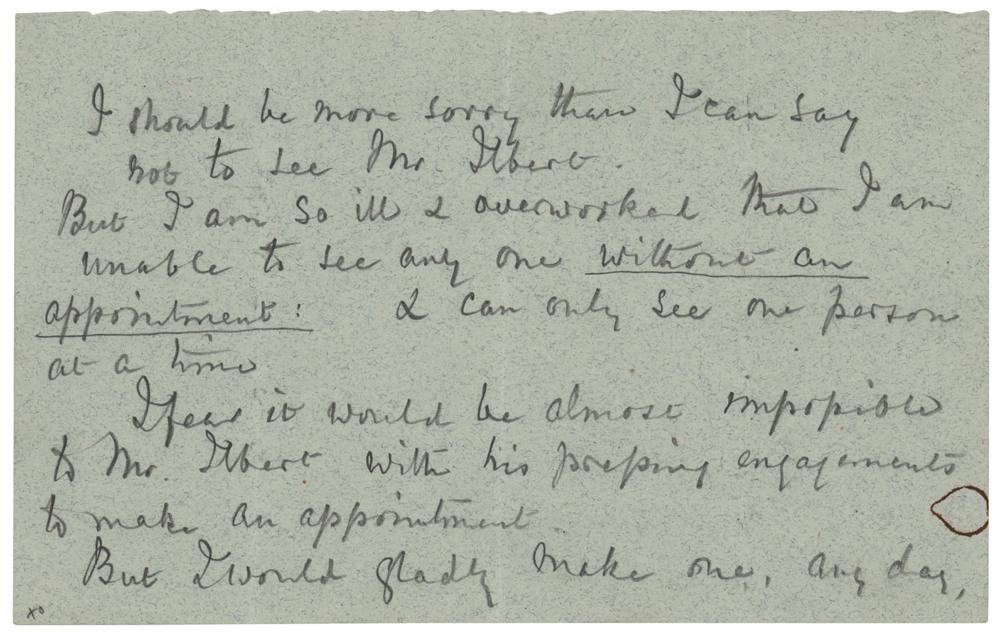 I should be more sorry than I can say
not to see Mr. Ilbert.
But I am so ill & overworked that I am
unable to see any one without an
appointment: & can only see one person
at a time
I fear it would be almost impossible
to Mr. Ilbert with his pressing engagements
to make an appointment
But I would gladly make one, any day,